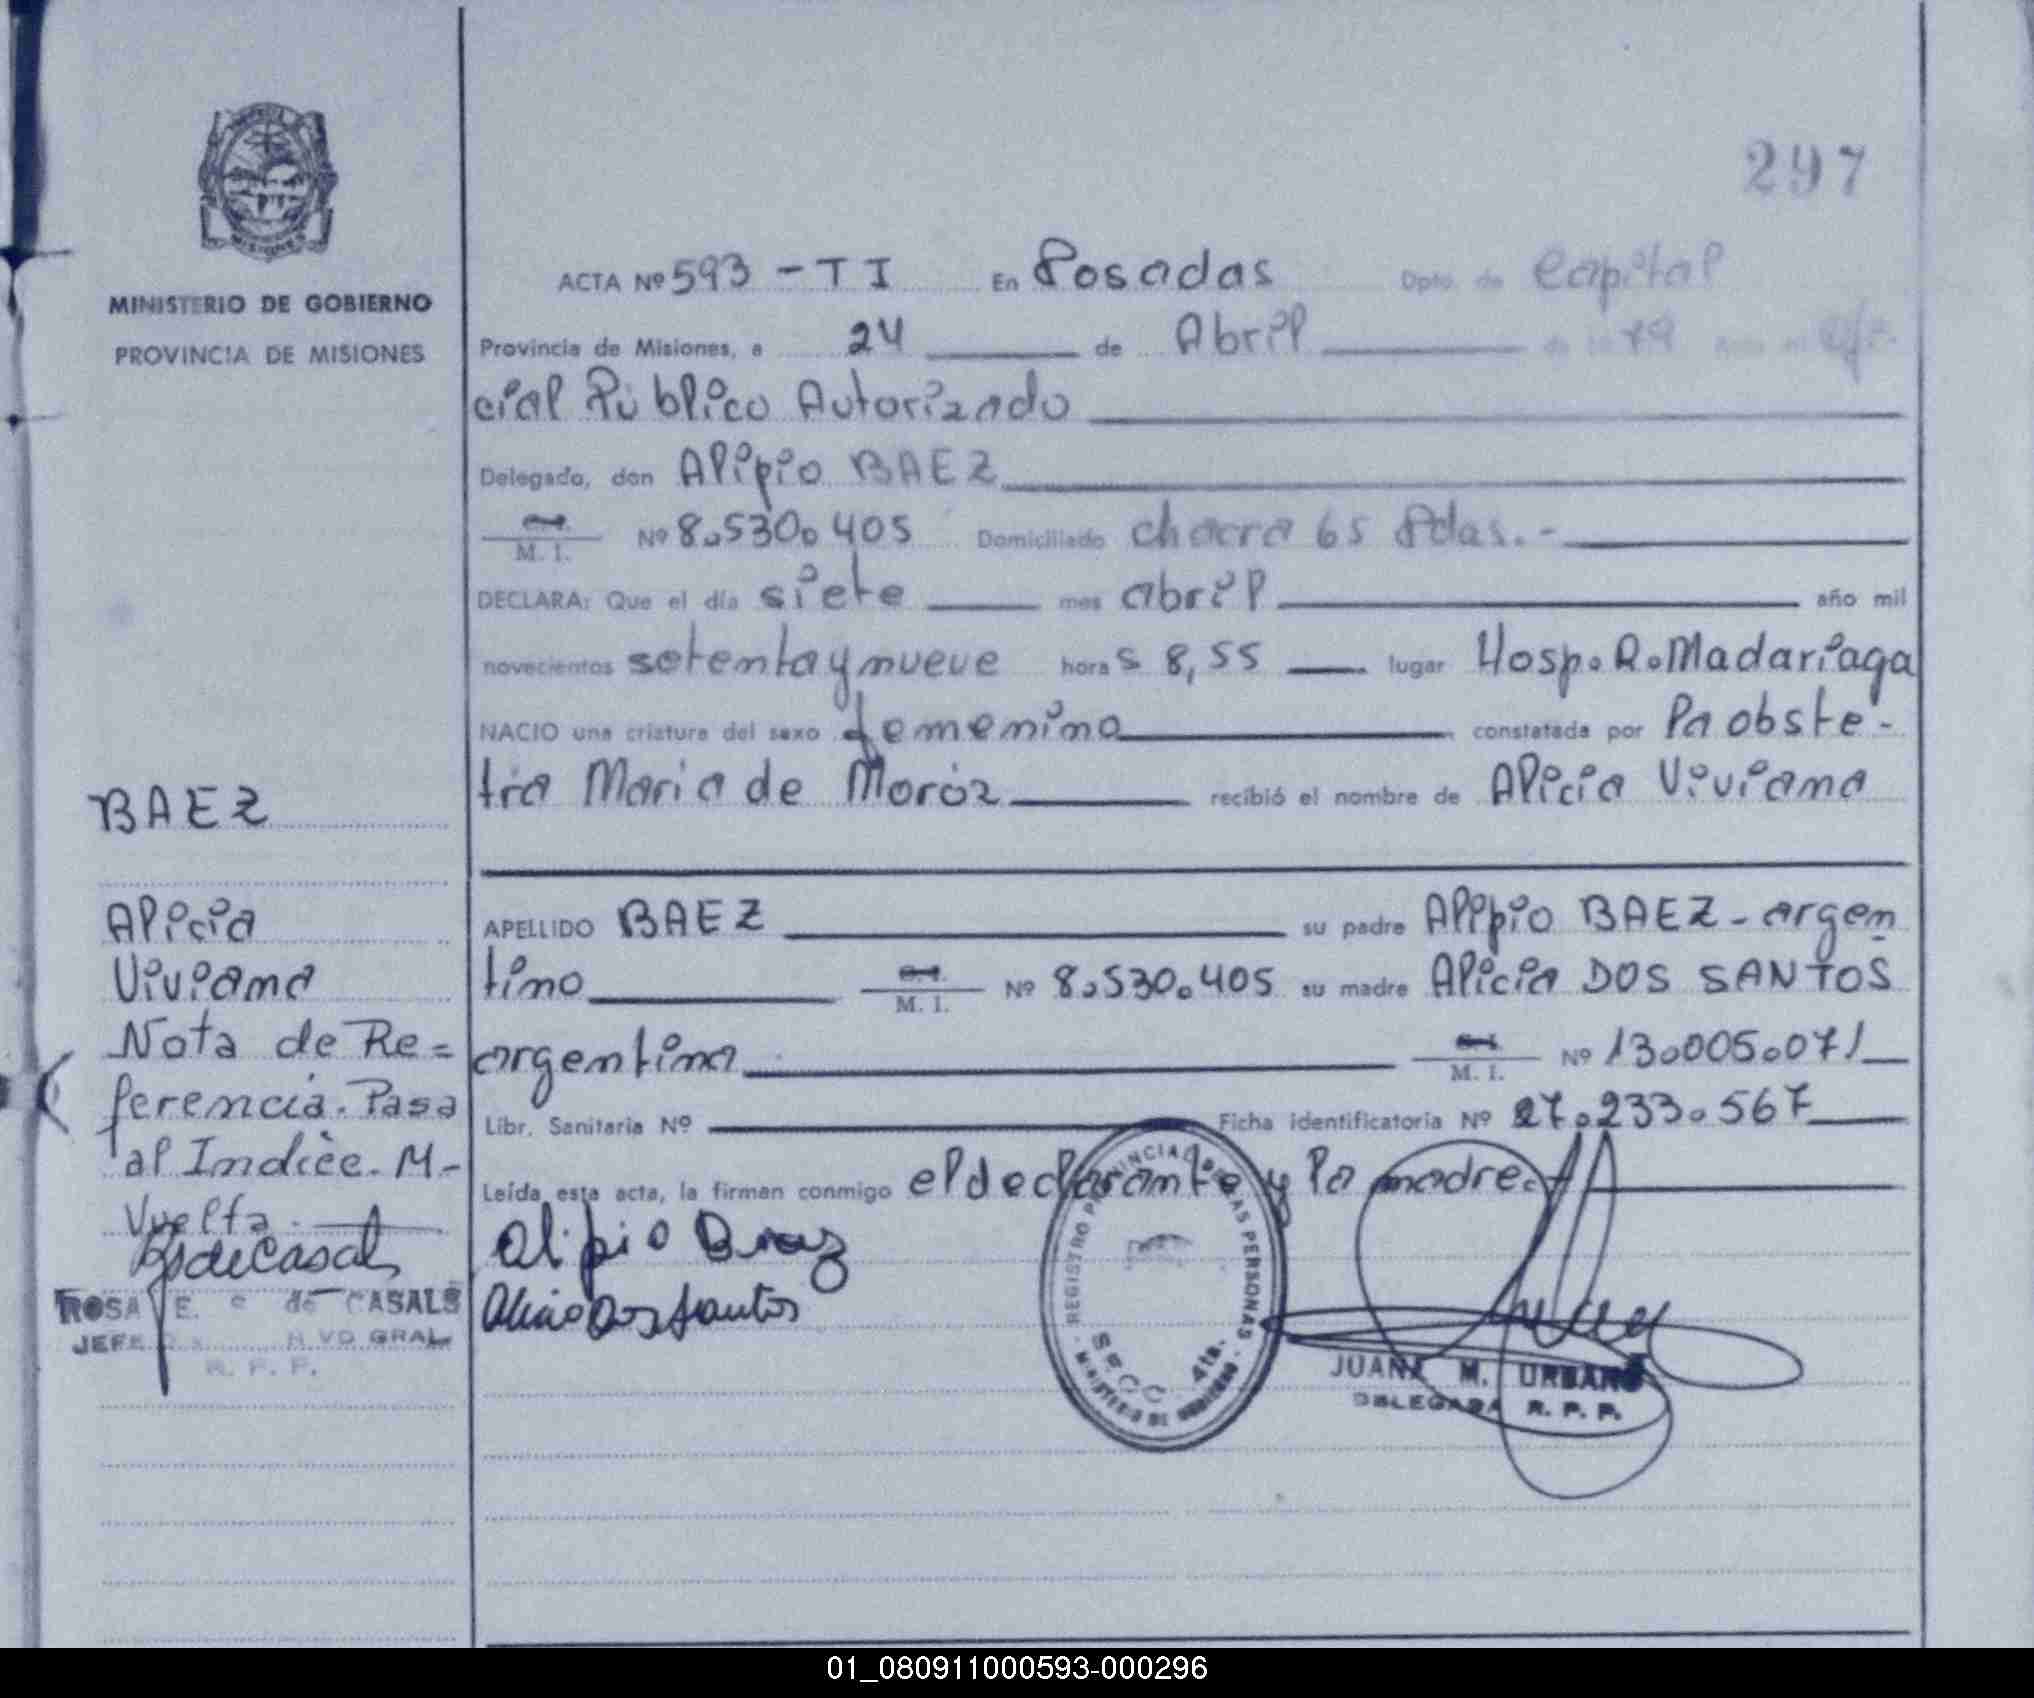 297
MISIONES
MINISTERIO DE GOBIERNO
PROVINCIA DE MISIONES
ACTA Nº 593 - T I En Posadas Dpto. de Capital
Provincia de Misiones, a 24 de Abril de 1979 Ante mí Ofi-
cial Público Autorizado
Delegado, don Alipio BAEZ
M. I. Nº 8.530.405 Domiciliado chacra 65 Pdas.-
DECLARA: Que el día siete mes abril año mil
novecientos setenta y nueve horas 8,55 lugar Hosp. R. Madariaga
NACIO una criatura del sexo femenino constatada por la obste-
tra Maria de Moróz recibió el nombre de Alicia Viviana
APELLIDO BAEZ su padre Alipio BAEZ - argen
tino M. I. Nº 8.530.405 su madre Alicia DOS SANTOS
argentina M. I. Nº 13.005.071
Libr. Sanitaria Nº Ficha identificatoria Nº 27.233.567
Leída esta acta, la firman conmigo el declarante y la madre.-
Alipio Baez
Alicia Dos Santos
REGISTRO PROVINCIAL DE LAS PERSONAS
SECC. 4ta.
MINISTERIO DE GOBIERNO
JUANA M. URBANO
DELEGADA R. P. P.
BAEZ
Alicia
Viviana
Nota de Re=
ferencia. Pasa
al Indice. M-
Vuelta.
RdeCasals
ROSA E. de CASALS
JEFE VO GRAL
R. P. P.
01_080911000593-000296